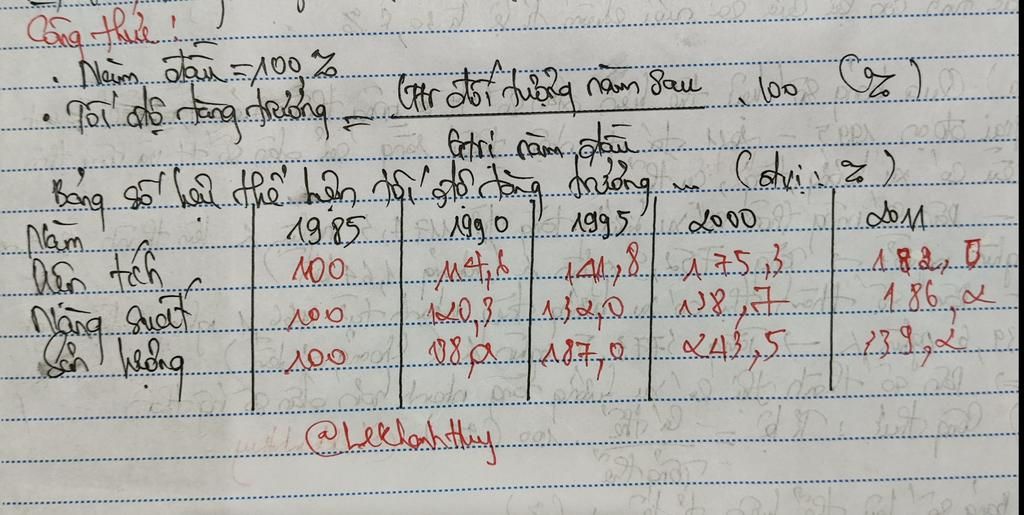 Công thức:
. Năm đầu = 100%
. Tốc độ tăng trưởng = Gtr đối tượng năm sau . 100 (%)
Gtrị năm đầu
Bảng số liệu thể hiện tốc độ tăng trưởng ... (đvị: %)
Năm 1985 1990 1995 2000 2011
Diện tích 100 114,6 141,8 175,3
Năng suất 100 120,3 132,0 138,7 186,2
Sản lượng 100 187,0 243,5 339,2
@LeKhanhthuy